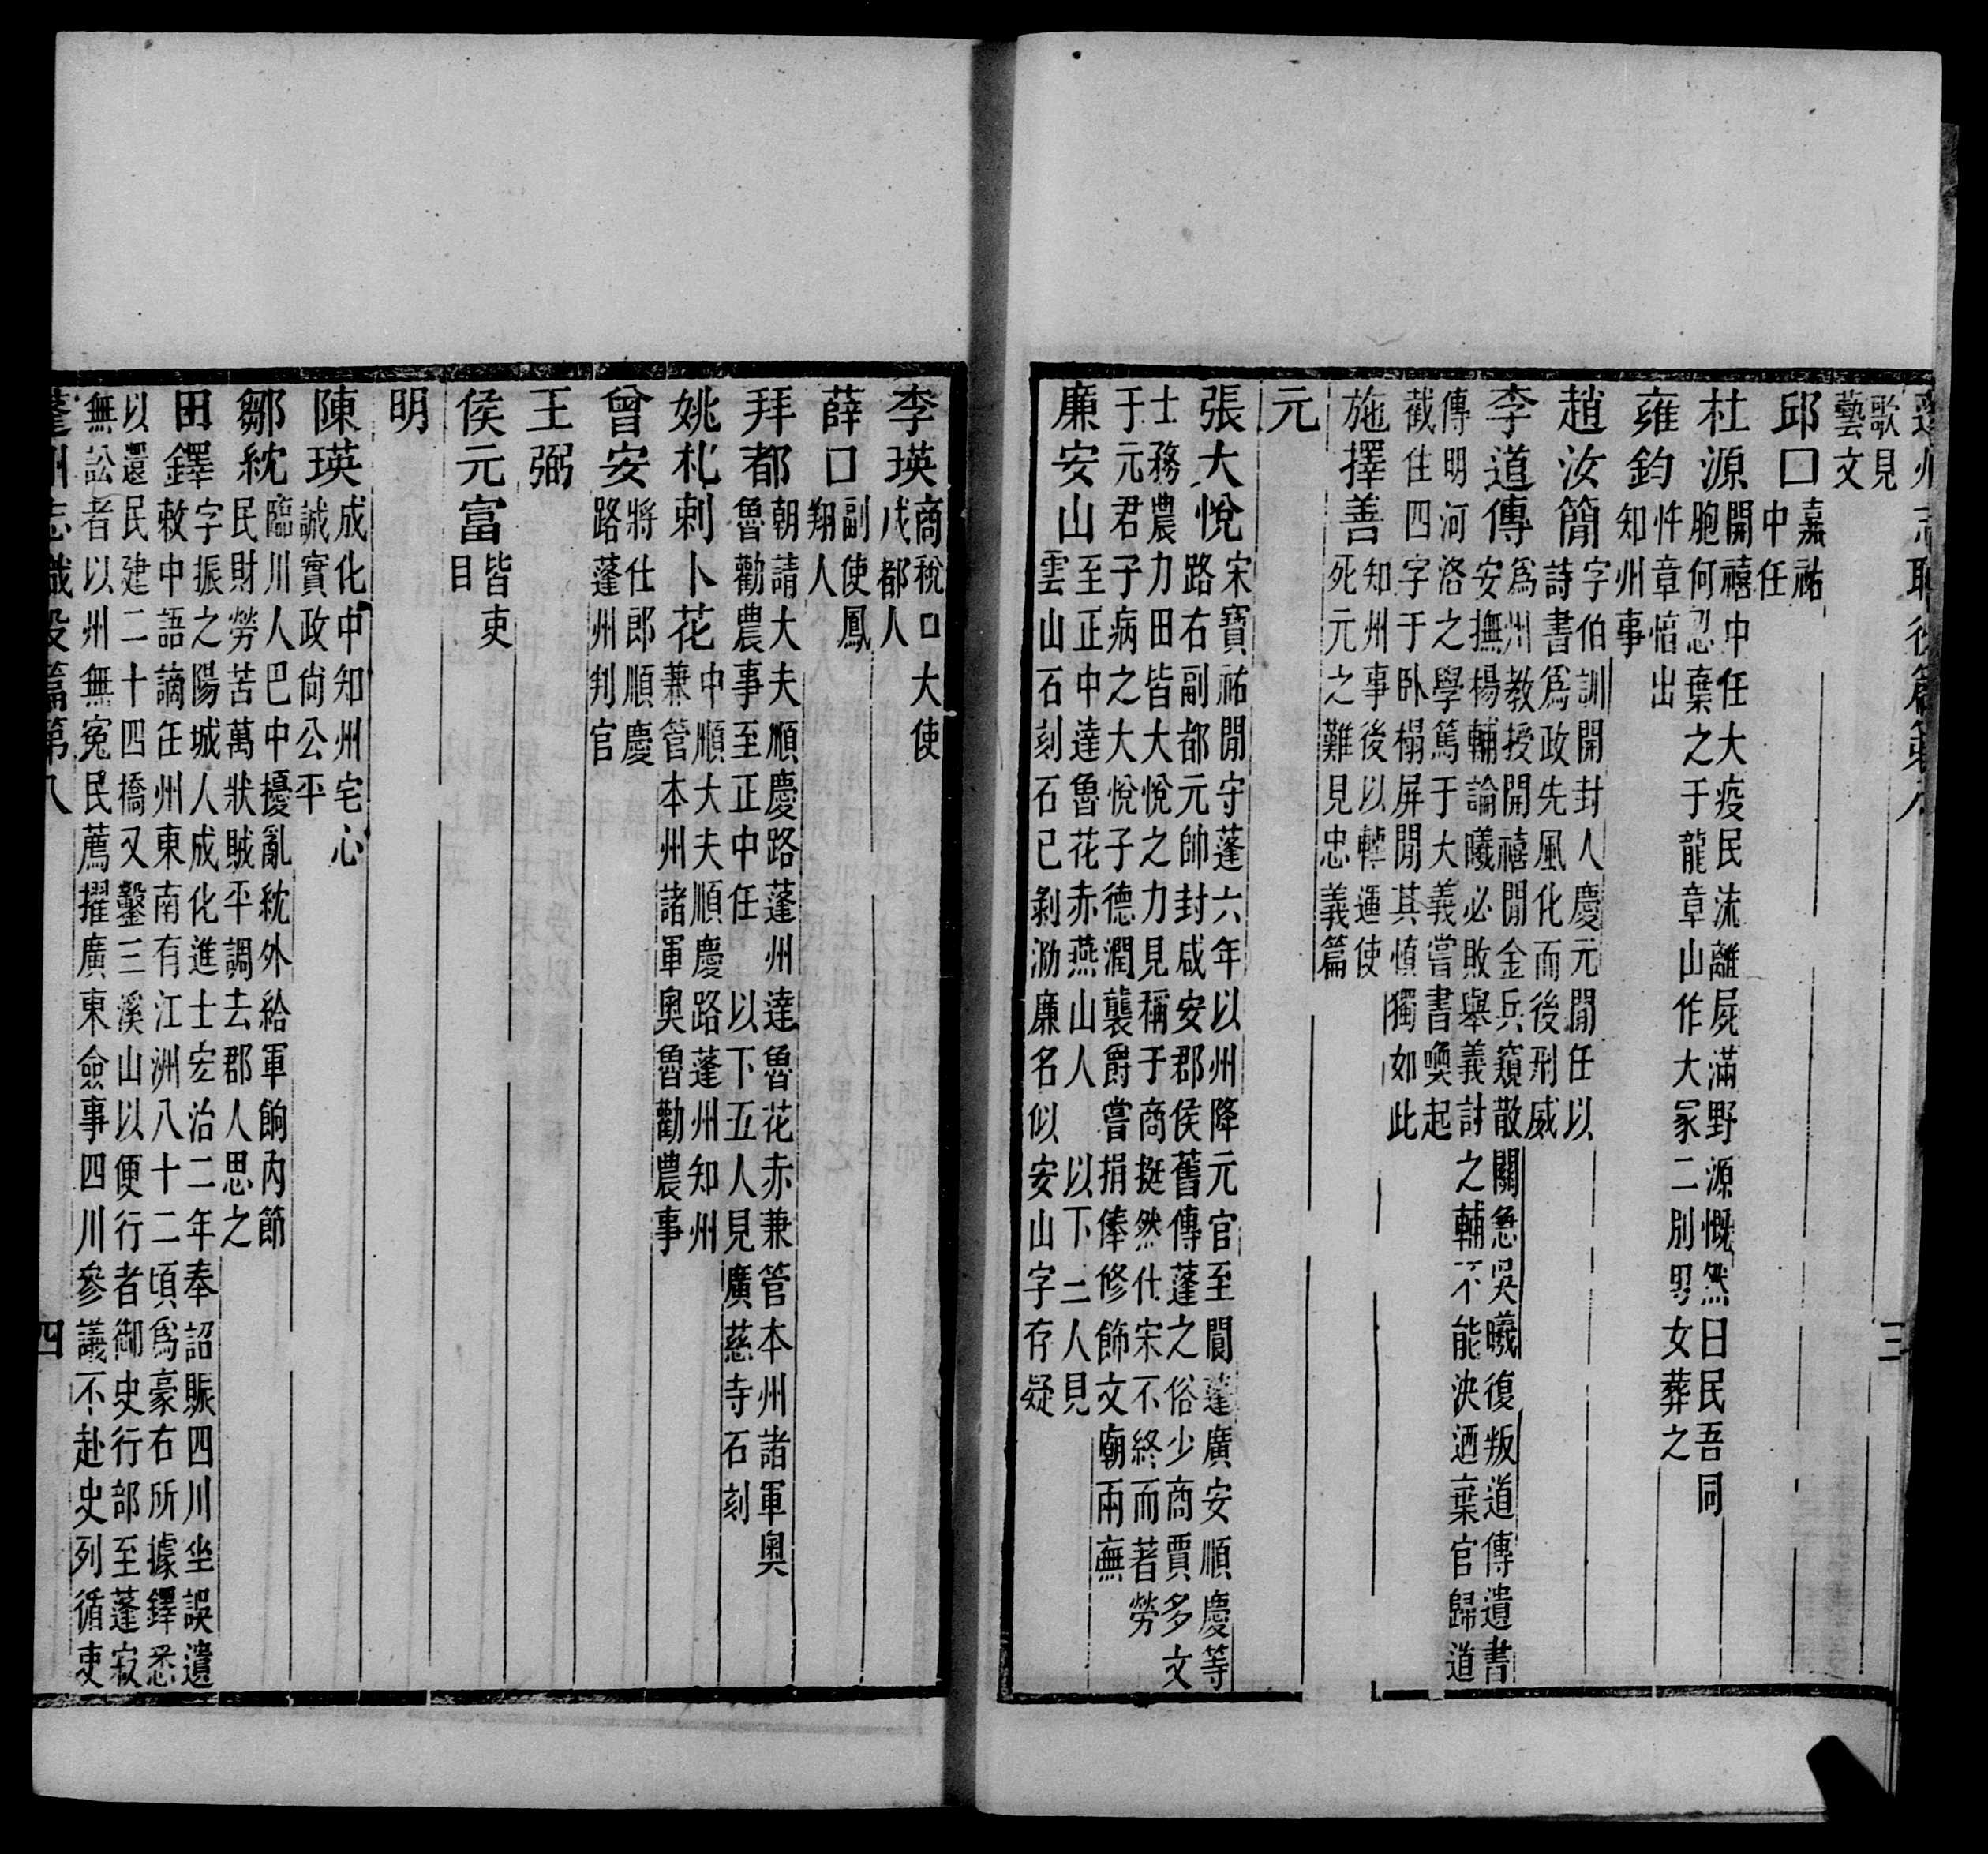 蓬州志職役篇第八
三
歌見
藝文
邱口嘉祐
中任
杜源開禧中任大疫民流離屍滿野源慨然曰民吾同
胞何忍棄之于龍章山作大冢二別男女葬之
雍鈞忤章惇出
知州事
趙汝簡字伯訓開封人慶元閒任以
詩書爲政先風化而後刑威
李道傳爲州教授開禧閒金兵窺散關急吳曦復叛道傳遺書
安撫楊輔論曦必敗舉義討之輔不能決迺棄官歸道
傳明河洛之學篤于大義嘗書喚起
截住四字于卧榻屏閒其慎獨如此
施擇善知州事後以轉運使
死元之難見忠義篇
元
張大悅宋寶祐閒守蓬六年以州降元官至閬蓬廣安順慶等
路右副都元帥封咸安郡侯舊傳蓬之俗少商賈多文
士務農力田皆大悅之力見稱于商挺然仕宋不終而著勞
于元君子病之大悅子德潤襲爵嘗捐俸修飾文廟兩廡
廉安山至正中達魯花赤燕山人以下二人見
雲山石刻石已剝泐廉名似安山字存疑
李瑛商稅口大使
戊都人
薛口副使鳳
翔人
拜都朝請大夫順慶路蓬州達魯花赤兼管本州諸軍奧
魯勸農事至正中任以下五人見廣慈寺石刻
姚札剌卜花中順大夫順慶路蓬州知州
兼管本州諸軍奧魯勸農事
曾安將仕郎順慶
路蓬州判官
王弼
侯元富皆吏
目
明
陳瑛成化中知州宅心
誠實政尚公平
鄒紞臨川人巴中擾亂紞外給軍餉內節
民財勞苦萬狀賊平調去郡人思之
田鐸字振之陽城人成化進士宏治二年奉詔賑四川坐誤遺
敕中語謫任州東南有江洲八十二頃爲豪右所據鐸悉
以還民建二十四橋又鑿三溪山以便行者御史行部至蓬寂
無訟者以州無冤民薦擢廣東僉事四川參議不赴史列循吏
蓬州志職役篇第八
四